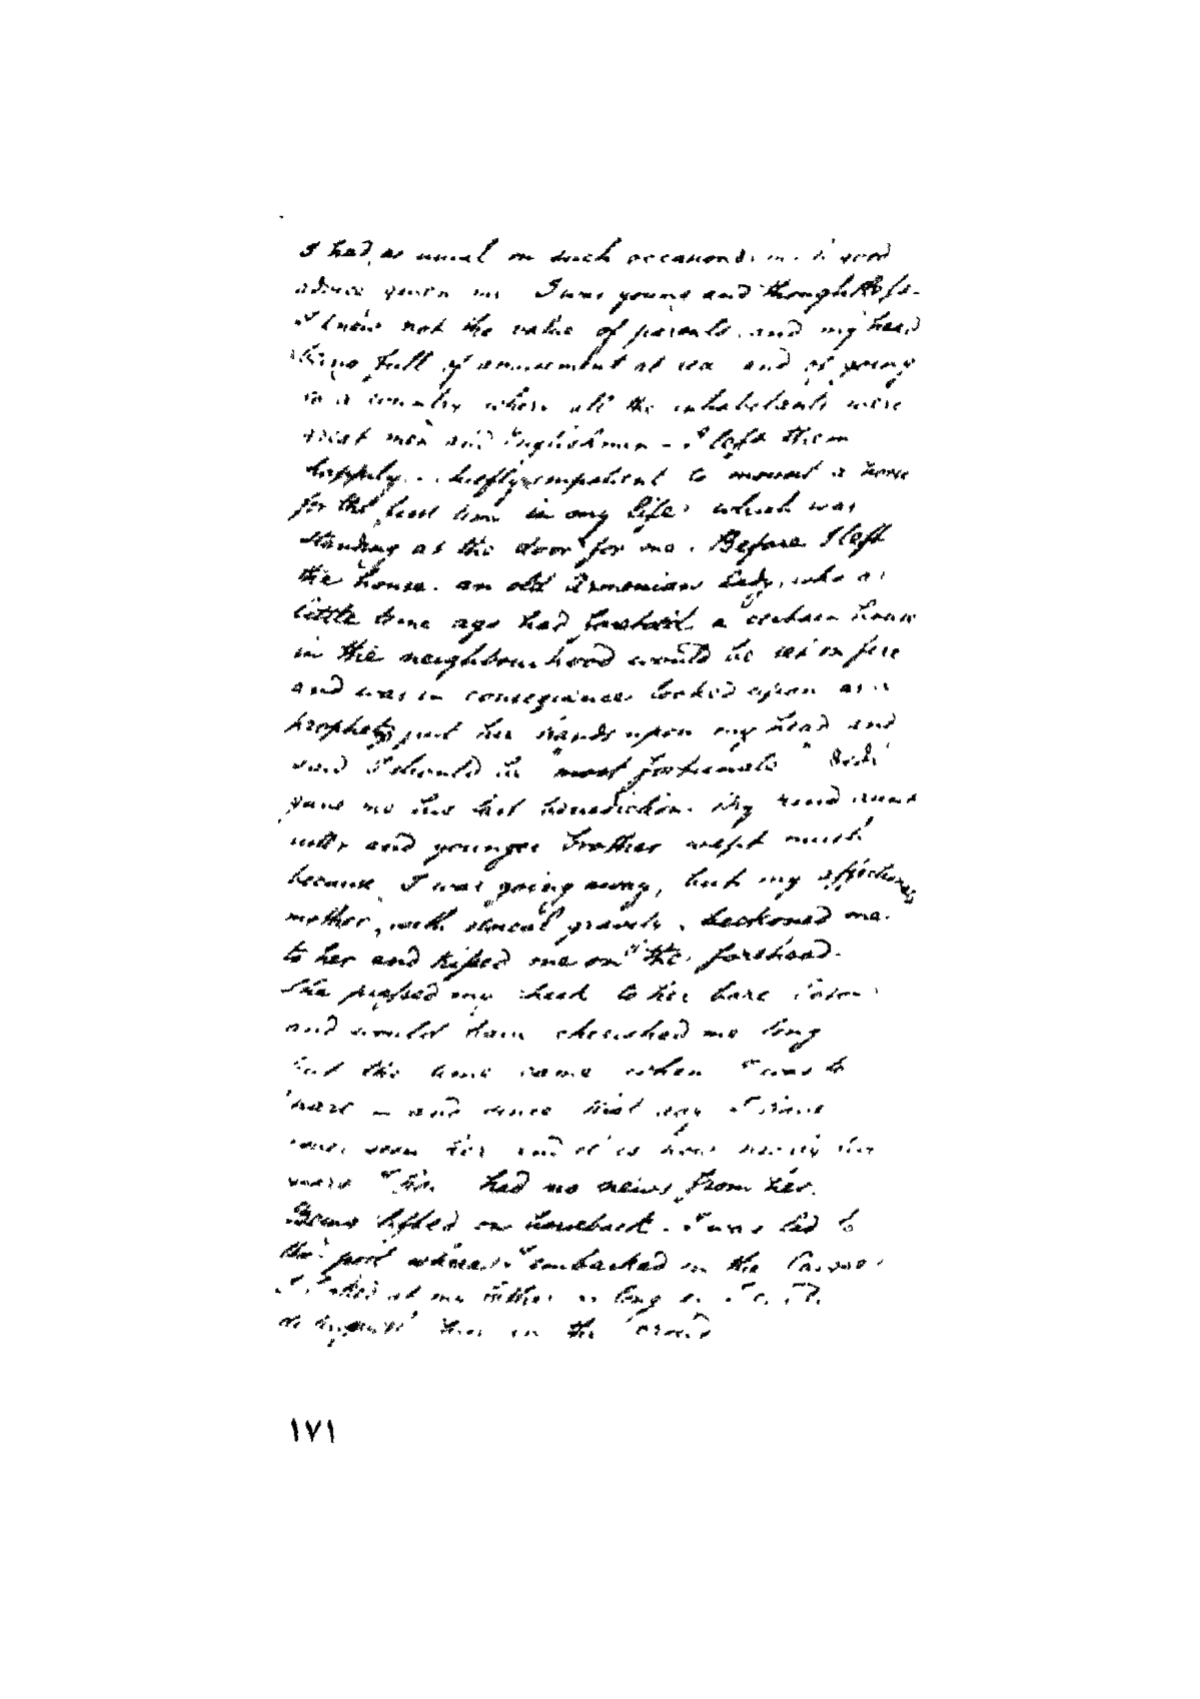 I had, as usual on such occasions, good
advice given me I was young and thoughtless.
I knew not the value of parents, and my head
being full of amusement at sea and of going
in a country where all the inhabitants were
great men and Englishmen – I left them
happily impatient to mount a horse
for the first time in my life, which was
standing at the door for me. Before I left
the house, an old Armenian Lady, who a
little time ago had foretold a certain house
in the neighbourhood would be set on fire
and was in consequence looked upon as a
prophet, put her hands upon my head and
said I should be "most fortunate"
gave me her benediction. My
and younger brother wept much
because I was going away, but my affectionate
mother, with gravity, beckoned me
to her and kissed me on the forehead.
She pressed my cheek to her bare
and would have cherished me long
but the time came when I was to
 – and since that day I have
seen her and it is now nearly
years I have had no news from her.
Being lifted on horseback. I was led to
the port where I embarked in the
I looked at my father as long as I
 him in the crowd
١٧١